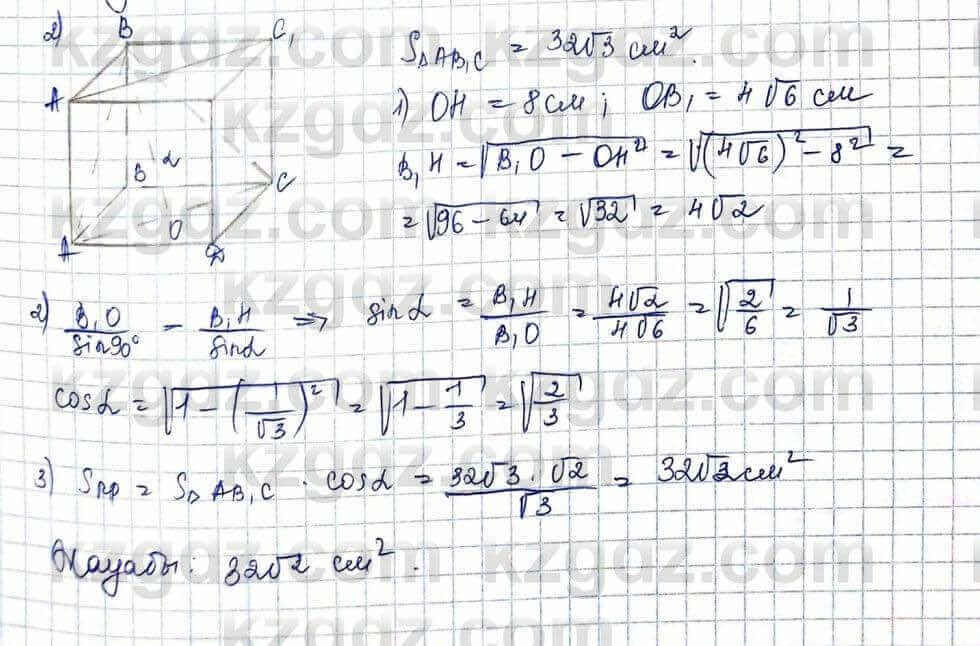 2)
B₁ C₁
A₁
B α C
A O D
S△AB₁C = 32√3 см².
1) OH = 8 см; OB₁ = 4√6 см
B₁H = √(B₁O − OH²) = √((4√6)² − 8²) =
= √(96 − 64) = √32 = 4√2
2) B₁O / sin90° − B₁H / sinα ⇒ sinα = B₁H / B₁O = 4√2 / 4√6 = √(2/6) = 1/√3
cosα = √(1 − (1/√3)²) = √(1 − 1/3) = √(2/3)
3) Sпр = S△AB₁C · cosα = 32√3 · √2 / √3 = 32√2 см²
Жауабы: 32√2 см².
kzgdz.com